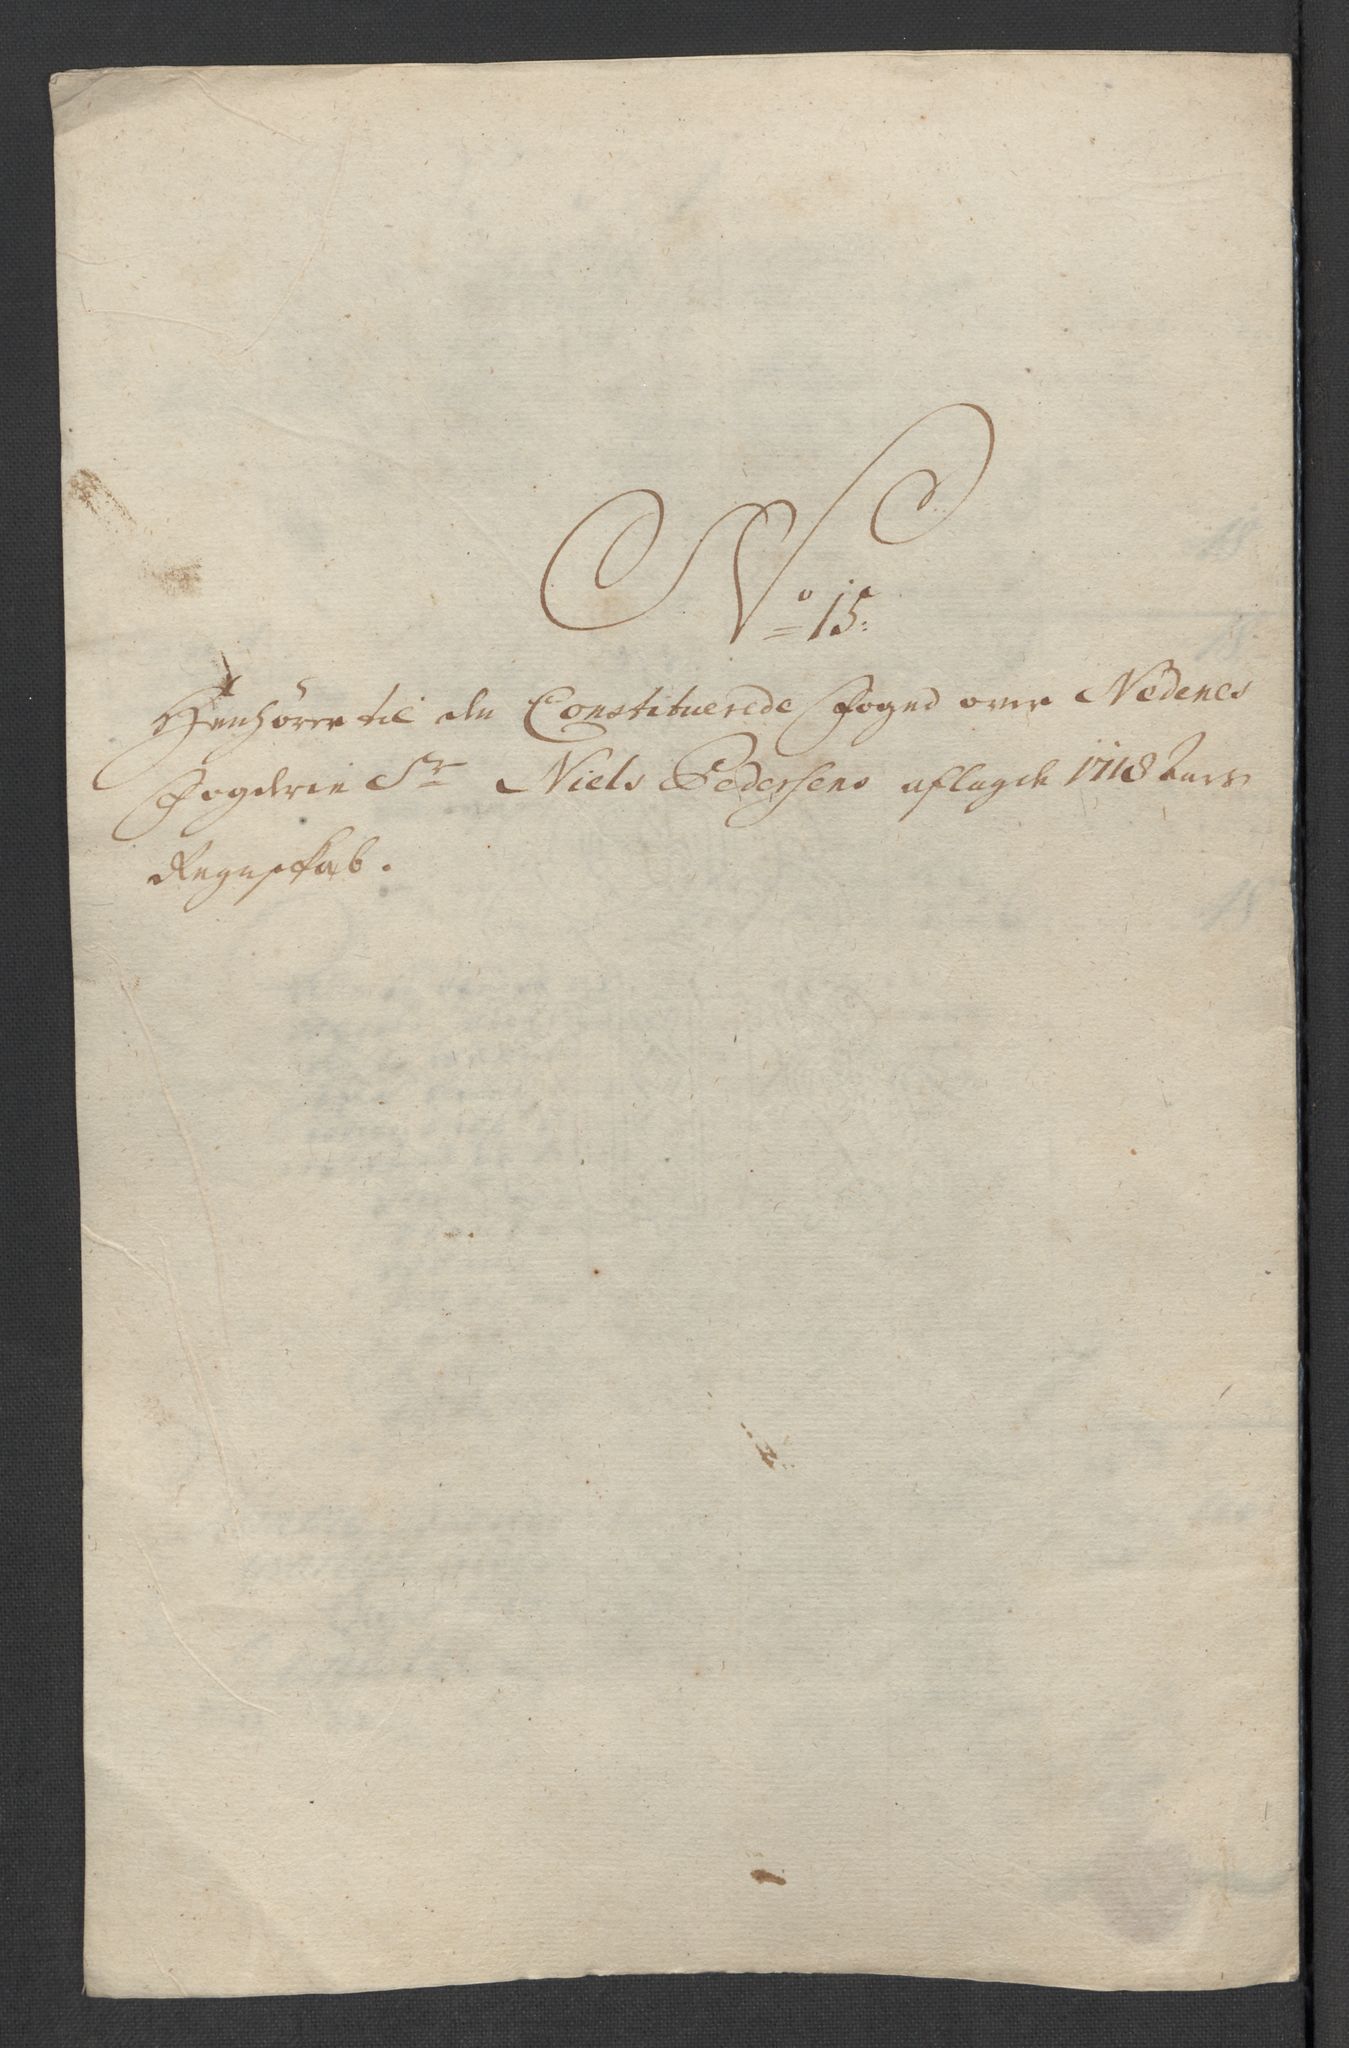 No 15.
Henhörer til den Constituerede Foged over Nedenes
Fogderie Sr Niels Pedersens aflagde 1718 Aars
Regnskab.